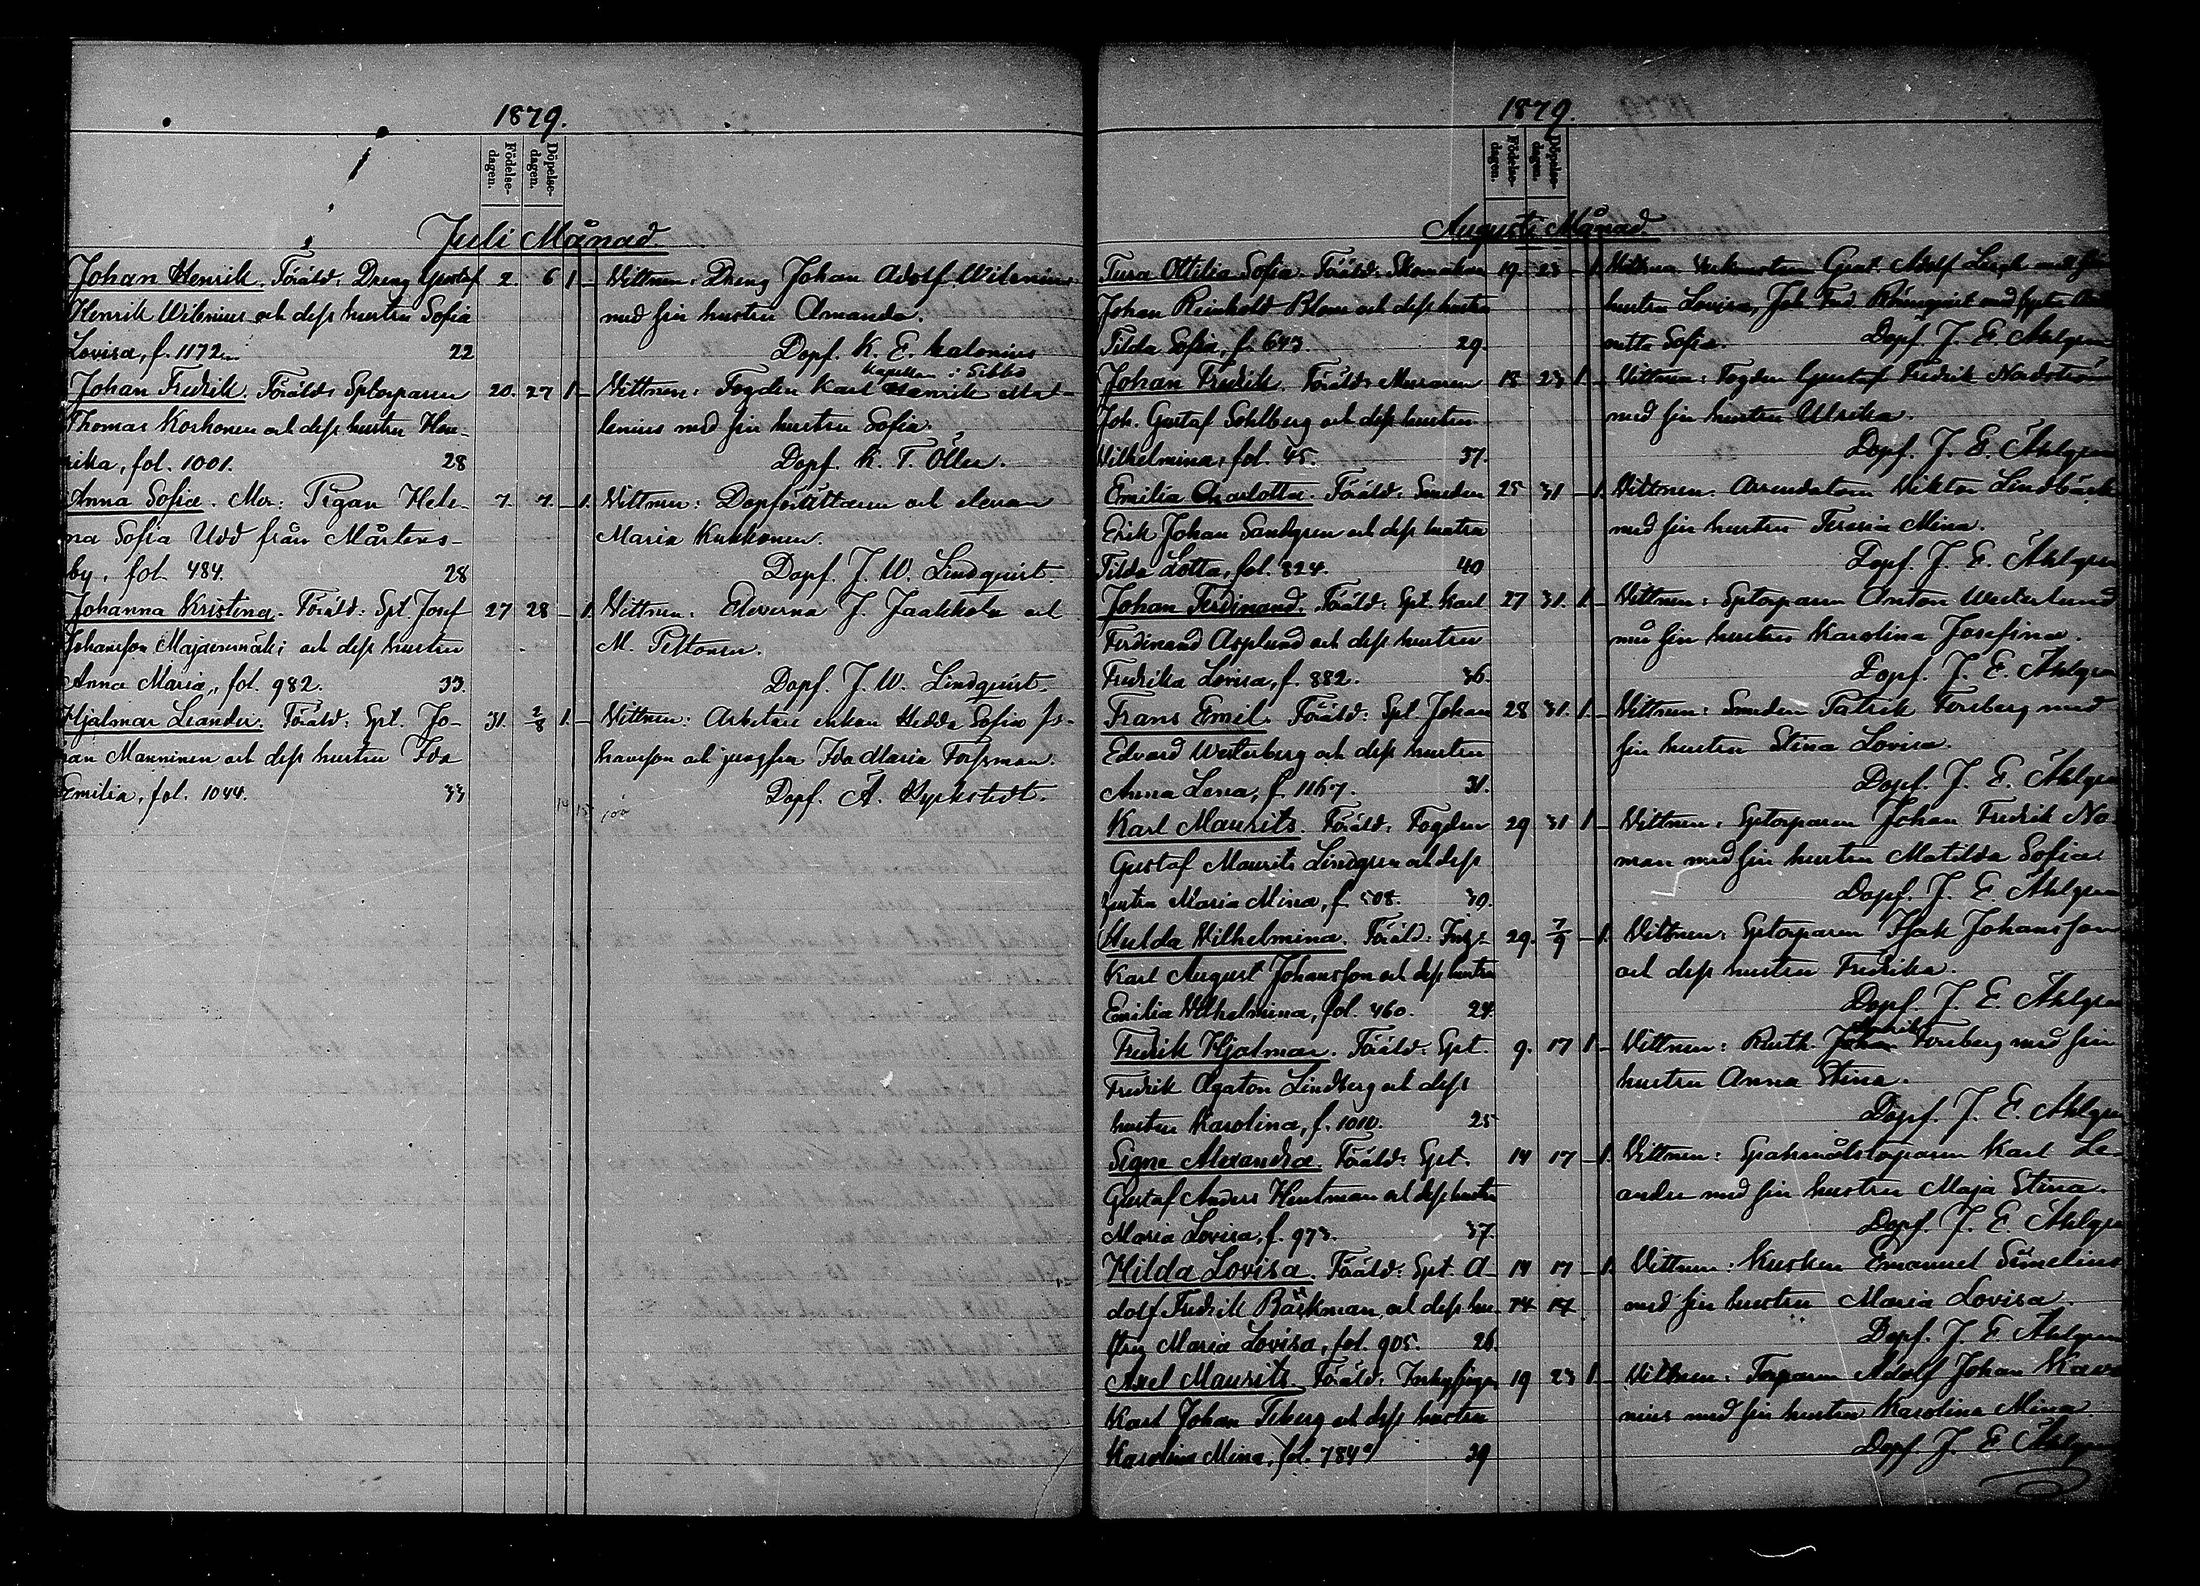 1879.
Födelse-dagen.
Döpelse-dagen.
Juli Månad.
Johan Henrik. Föräld: Dreng Gustaf 2. 6 1 –
Henrik Wilenius och dess hustru Sofia
Lovisa, f. 1172 22
Vittnen: Dreng Johan Adolf Wilenius
med sin hustru Amanda.
Döpf. K. E. Calonius
Kapellan i Sibbo
Johan Fredrik. Föräld: Sptorparen 20. 27 1 –
Thomas Korhonen och dess hustru Hen-
rika, fol. 1001. 28
Vittnen: Fogden Karl Henrik Mal-
lenius med sin hustru Sofia.
Döpf. K. T. Öller.
Anna Sofia. Mor: Pigan Hele- 7. 7. – 1.
na Sofia Udd från Mårtens-
by, fol. 484. 28
Vittnen: Dopförrättaren och eleven
Maria Kukkonen.
Döpf. J. W. Lindquist.
Johanna Kristina. Föräld: Spt. Josef 27 28 – 1.
Johansson Majaienmäki och dess hustru
Anna Maria, fol. 982. 33.
Vittnen: Eleverna J. Jaakkola och
M. Peltonen.
Döpf. J. W. Lindquist.
Hjalmar Leander. Föräld: Spt. Jo- 31. 2/8 1. –
han Manninen och dess hustru Ida
Emilia, fol. 1044. 33
Vittnen: Arbetare enkan Hedda Sofia Jo-
hansson och jungfru Ida Maria Forssman.
Döpf. A. Nyckstedt.
1879.
Födelse-dagen.
Döpelse-dagen.
Augusti Månad.
Tura Ottilia Sofia. Föräld: Skomakare 19. 23 – 1.
Johan Reinhold Blom och dess hustru
Tilda Sofia, f. 643. 29.
Gust. Adolf med sin
hustru Lovisa, Joh. Fred. Rönnqvist med
netta Sofia. Döpf. J. E. Ahlgren
Johan Fredrik. Föräld: Muraren 18 23 1 –
Joh. Gustaf Sohlberg och dess hustru
Wilhelmina, fol. 45. 37.
Vittnen: Fogden Gustaf Fredrik Nordström
med sin hustru Ulrika.
Döpf. J. E. Ahlgren
Emilia Charlotta. Föräld: Smeden 25 31 – 1.
Erik Johan Sandgren och dess hustru
Tilda Lotta, fol. 824. 40
Vittnen: Arrendatorn Viktor Lindbäck
med sin hustru Teresia Mina.
Döpf. J. E. Ahlgren
Johan Ferdinand. Föräld: Spt. Karl 27 31. 1. –
Ferdinand Asplund och dess hustru
Fredrika Lovisa, f. 882. 36.
Vittnen: Sptorparen Anton Westerlund
med sin hustru Karolina Josefina.
Döpf. J. E. Ahlgren
Frans Emil. Föräld: Spt. Johan 28 31. 1. –
Edvard Westerberg och dess hustru
Anna Lena, f. 1167. 31.
Vittnen: Smeden Patrik Forsberg med
sin hustru Stina Lovisa.
Döpf. J. E. Ahlgren
Karl Maurits. Föräld: Fogden 29 31 1 –
Gustaf Maurits Lindgren och dess
hustru Maria Mina, f. 508. 30.
Vittnen: Sptorparen Johan Fredrik No-
man med sin hustru Matilda Sofia.
Döpf. J. E. Ahlgren
Hulda Wilhelmina. Föräld: Inhys- 29. 7/9 – 1.
Karl August Johansson och dess hustru
Emilia Wilhelmina, fol. 460. 24.
Vittnen: Sptorparen Isak Johansson
och dess hustru Fredrika.
Döpf. J. E. Ahlgren
Fredrik Hjalmar. Föräld: Spt. 9. 17 1 –
Fredrik Agaton Lindberg och dess
hustru Karolina, f. 1010. 25
Vittnen: Rusth. Johan Forsberg med sin
hustru Anna Stina.
Döpf. J. E. Ahlgren
Signe Alexandra. Föräld: Spt. 14 17 – 1.
Gustaf Anders Hentman och dess hustru
Maria Lovisa, f. 973. 37.
Vittnen: Spakmålstorparen Karl Le-
ander med sin hustru Maja Stina.
Döpf. J. E. Ahlgren
Hilda Lovisa. Föräld: Spt. A- 14 17 – 1.
dolf Fredrik Bäckman och dess hu- 14 17
stru Maria Lovisa, fol. 905. 26.
Vittnen: Kusken Emanuel Simelius
med sin hustru Maria Lovisa.
Döpf. J. E. Ahlgren
Axel Maurits. Föräld: Inhysingen 19 23 1 –
Karl Johan Teberg och dess hustru
Karolina Mina, fol. 784 39
Vittnen: Torparen Adolf Johan Kave-
nius med sin hustru Karolina Mina.
Döpf. J. E. Ahlgren